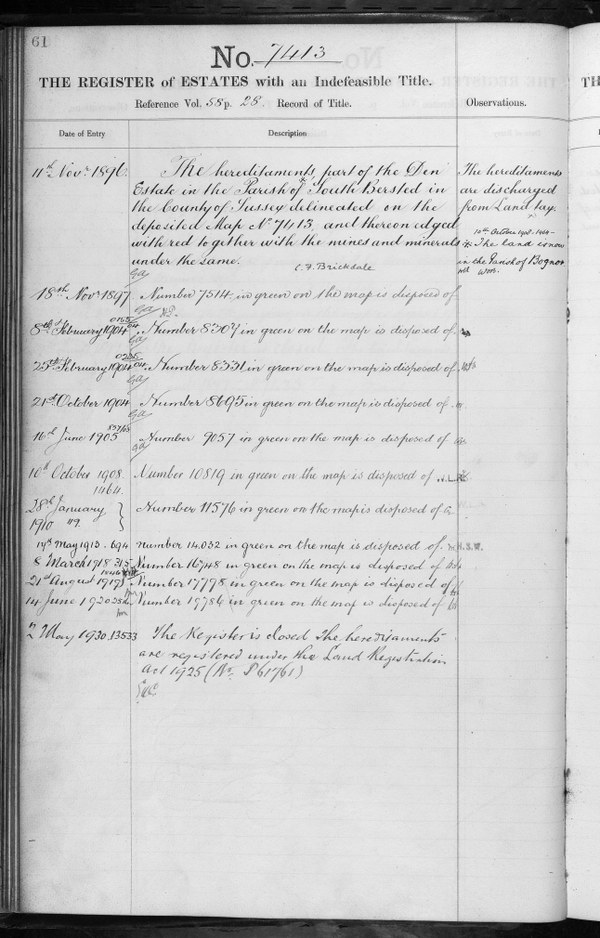 61
No. 7413
THE REGISTER of ESTATES with an Indefeasible Title.
Reference Vol. 58 p. 28. Record of Title.
Observations.
Date of Entry
Description
11th Novr. 1896.
The hereditaments, part of the Den
Estate in the Parish of South Bersted in
the County of Sussex delineated on the
deposited Map No. 7413, and thereon edged
with red together with the mines and minerals
under the same.
C. F. Brickdale
The hereditaments
are discharged
from Land tax.
10th October 1908. 1464
The land is now
in the Parish of Bognor
18th Novr. 1897
Number 7514 in green on the map is disposed of
8th February 1904
Number 8307 in green on the map is disposed of.
25th February 1904
Number 8331 in green on the map is disposed of.
21st October 1904
Number 8695 in green on the map is disposed of.
16th June 1905
Number 9057 in green on the map is disposed of
10th October 1908
1464.
Number 10819 in green on the map is disposed of
28th January
1910
Number 11576 in green on the map is disposed of
19th May 1913. 694
number 14.032 in green on the map is disposed of.
8 March 1918 315
Number 16748 in green on the map is disposed of
21st August 1919
Number 17798 in green on the map is disposed of
14 June 1920
Number 19784 in green on the map is disposed of
2 May 1930. 13533
The Register is closed The hereditaments
are registered under the Land Registration
Act 1925 (No. P 61761)